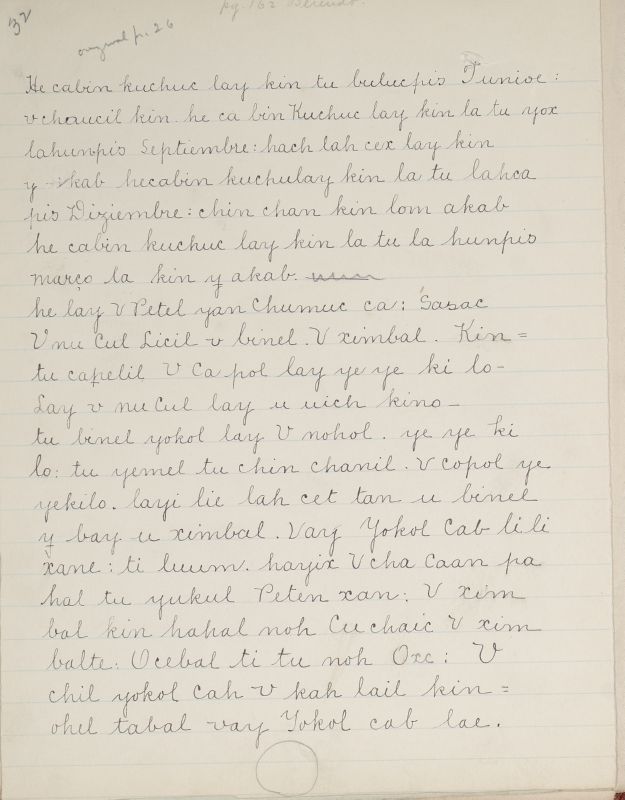 32
pg. 162 Berendt.
original p. 26
He cabin kuchuc lay kin tu bulucpis Junioe :
v chaucil kin. he ca bin Kuchuc lay kin la tu yox
lahunpis Septiembre: hach lah cex lay kin
y kab hecabin kuchulay kin la tu lahca
pis Diziembre: chin chan kin lom akab
he cabin kuchuc lay kin la tu la hunpis
março la kin y akab.
he lay V Petel yan Chumuc ca: Sasac
V nu Cul Licil v binel. V ximbal. Kin=
tu capelil V Ca pol lay ye ye ki lo-
Lay v nu Cul lay u uich kino-
tu binel yokol lay V nohol. ye ye ki
lo: tu yemel tu chin chanil. V copol ye
yekilo. layi lic lah cet tan u binel
y bay u ximbal. Vay Yokol Cab lili
xane: ti luum. hayix V cha Caan pa
hal tu yukul Peten xan: V xim
bal kin hahal noh Cuchaic V xim
balte: Ocebal ti tu noh Oxc: V
chil yokol Cah V kah lail kin =
ohel tabal vay Yokol cab lae.